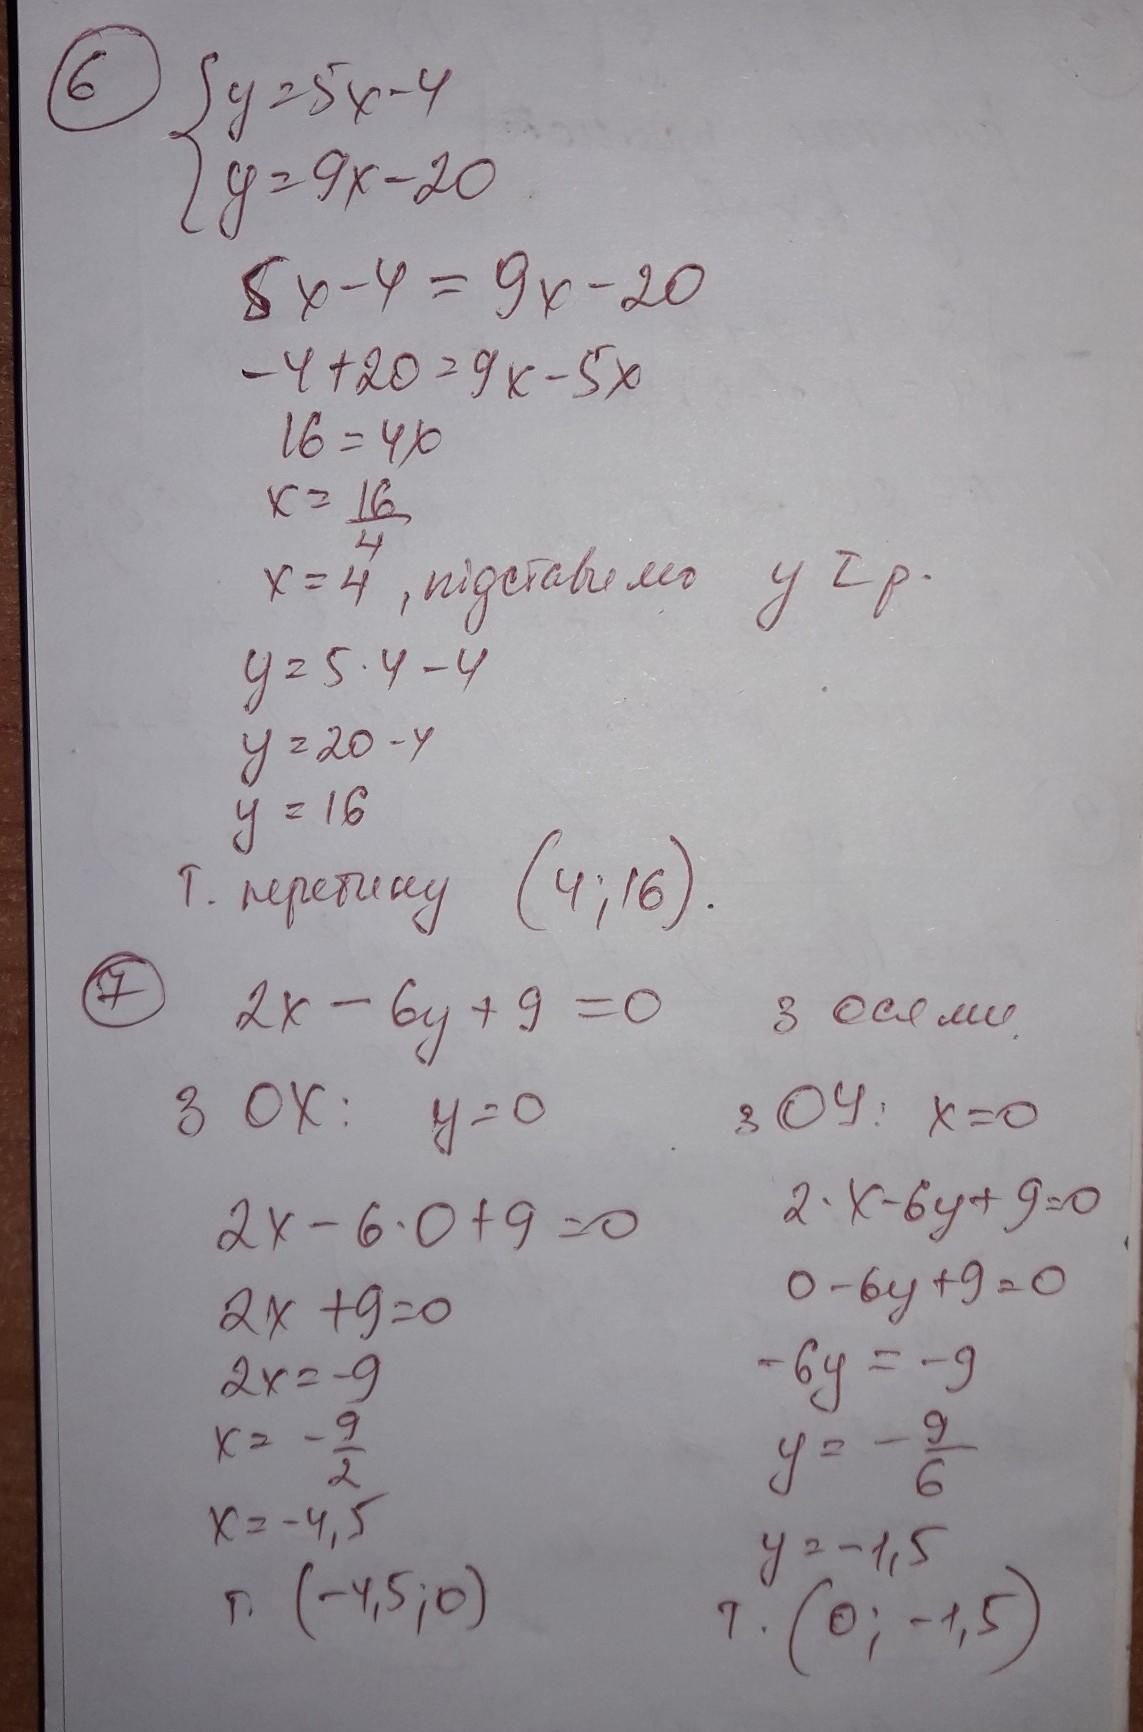 6 { y=5x-4
y=9x-20
5x-4=9x-20
-4+20=9x-5x
16=4x
x=16/4
x=4, підставимо у I р.
y=5·4-4
y=20-4
y=16
Т. перетину (4;16).
7 2x-6y+9=0 з осями
з OX: y=0
2x-6·0+9=0
2x+9=0
2x=-9
x=-9/2
x=-4,5
т. (-4,5;0)
з OY: x=0
2·x-6y+9=0
0-6y+9=0
-6y=-9
y=-9/6
y=-1,5
т. (0;-1,5)